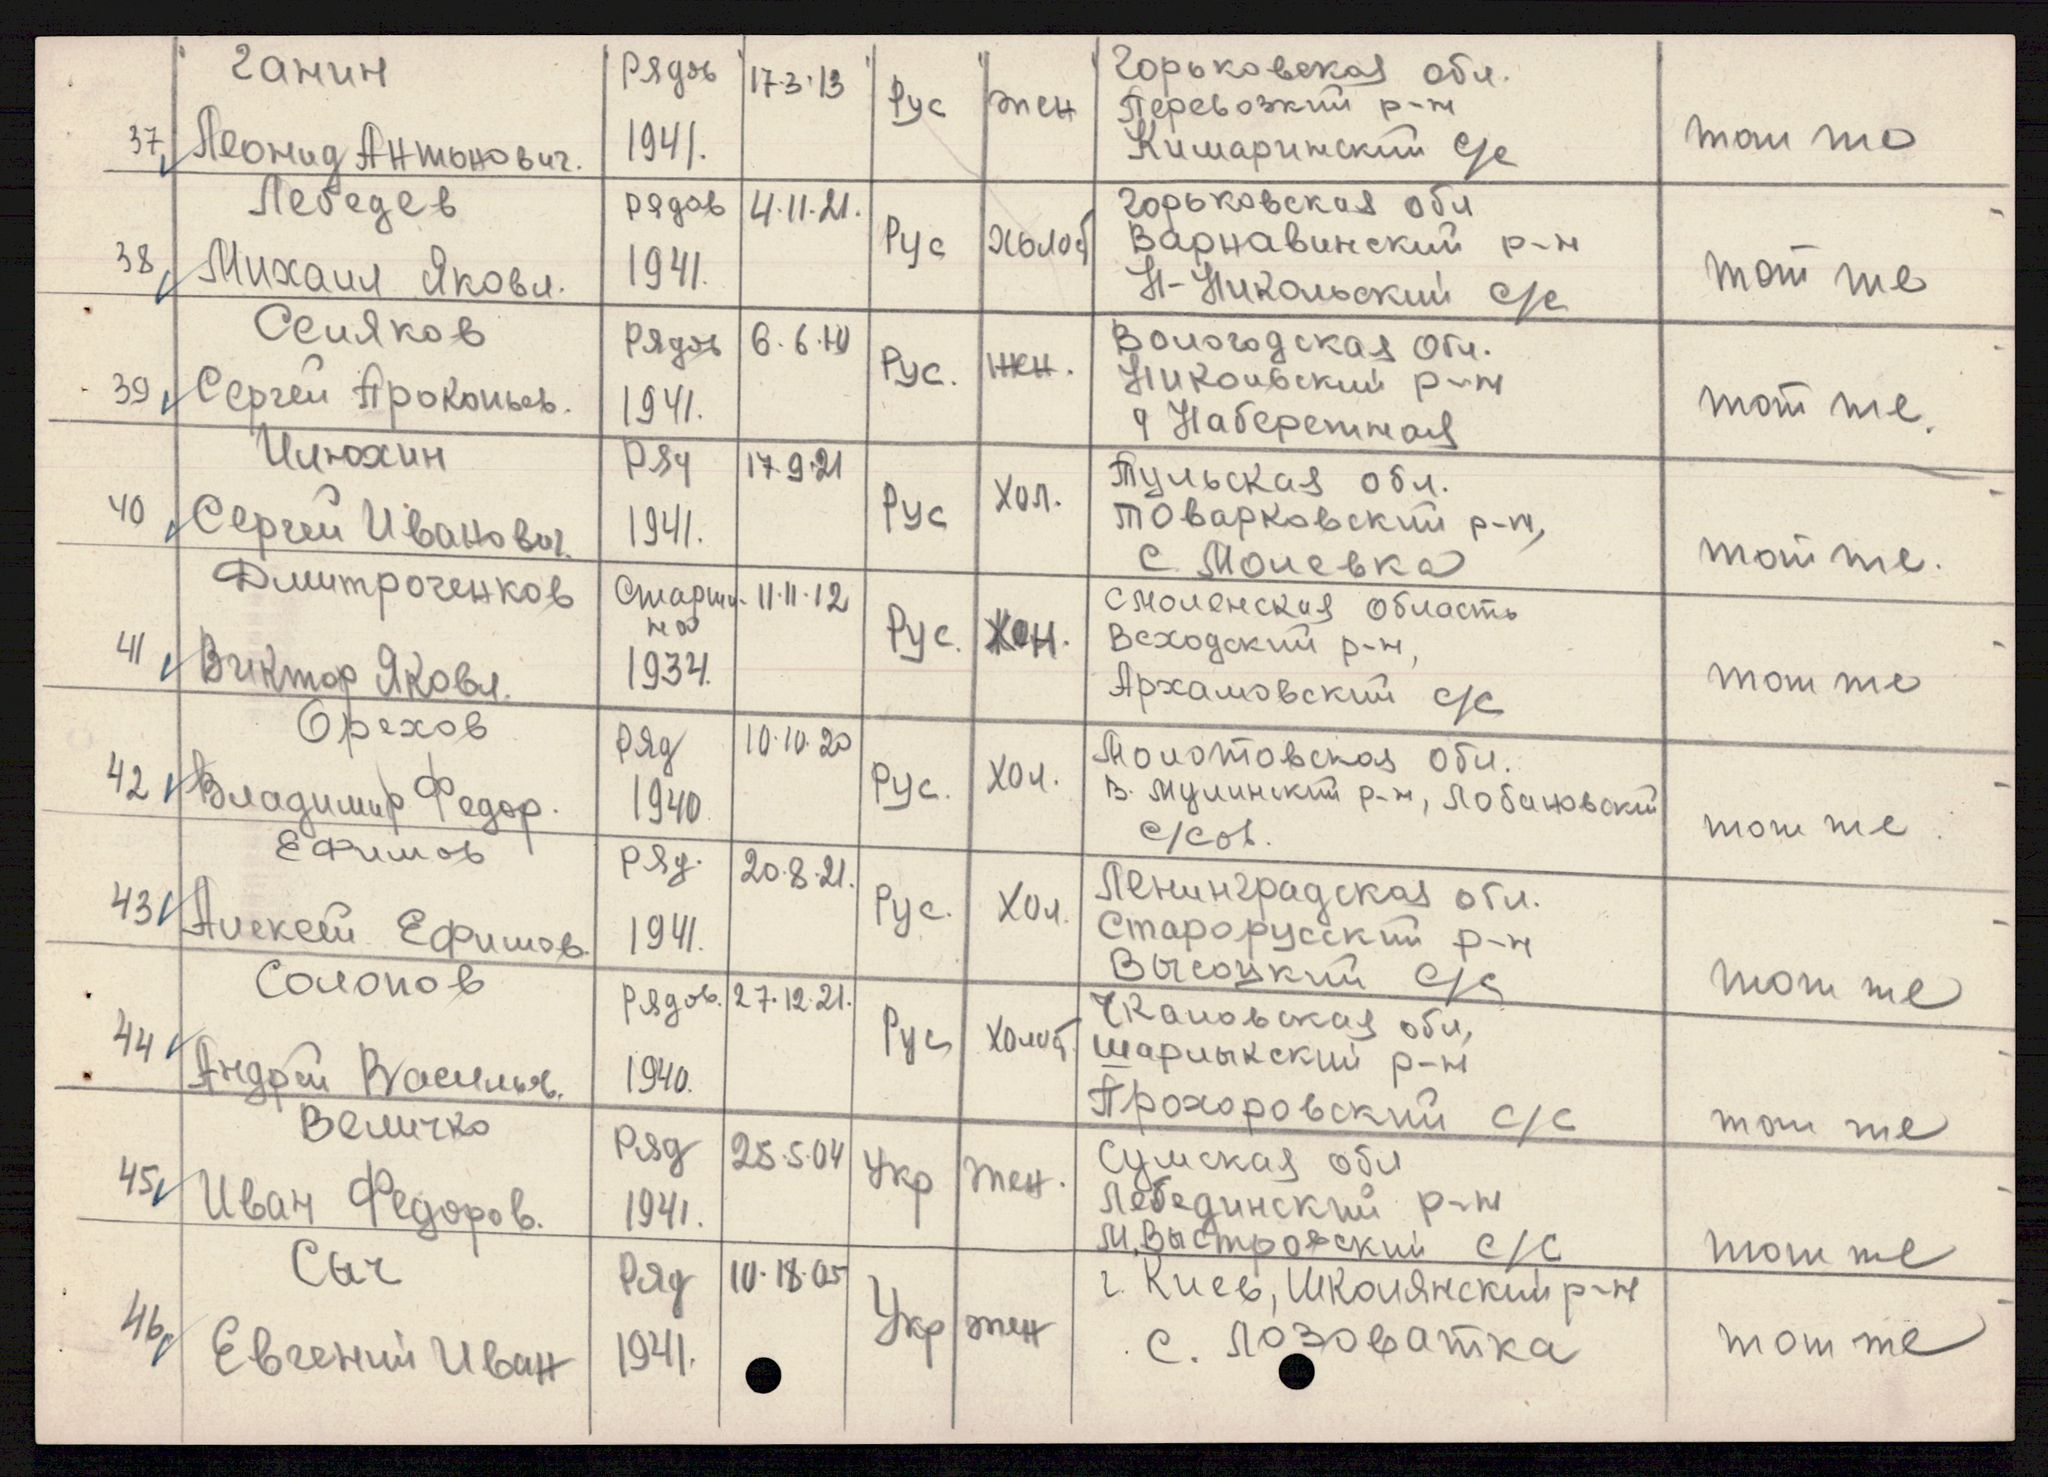 Ганин Рядов 17.3.13 Рус жен Горьковская обл.
Перевозкий р-н
37 Леонид Антонович. 1941. Кимаринский с/с тот же
Лебедев рядов 4.11.21. Рус холост Горьковская обл
Варнавинский р-н
38 Михаил Яковл. 1941. Н-Никольский с/с тот же
Селяков Рядов 6.6.10 Рус. жен. Вологодская Обл.
Никольский р-н
39 Сергей Прокопьев. 1941. д Набережная тот же.
Илюхин Ряд 17.9.21 Рус хол. Тульская обл.
Товарковский р-н,
40 Сергей Иванович. 1941. с. Молевка тот же.
Дмитроченков Старши- 11.11.12 Рус. жен. Смоленская область
на Всходский р-н,
41 Виктор Яковл. 1934. Архамовский с/с тот же
Орехов Ряд 10.10.20 Рус. хол. Молотовская обл.
42 Владимир Федор. 1940 В. Мулинский р-н, Лобановский тот же
с/сов.
Ефимов Ряд. 20.8.21. Рус. хол. Ленинградская обл.
43 Алексей Ефимов. 1941. Старорусский р-н
Высоцкий с/с тот же
Солопов Рядов. 27.12.21. Рус холост Чкаловская обл,
44 Шарлыкский р-н
Андрей Васильев. 1940. Прохоровский с/с тот же
Величко Ряд 25.5.04 Укр жен. Сумская обл
45 Иван Федоров. 1941. Лебединский р-н
М.Выстроский с/с тот же
Сыч Ряд 10.18.05 Укр жен г. Киев, Шполянский р-н
46 Евгений Иван 1941. с. Лозоватка тот же